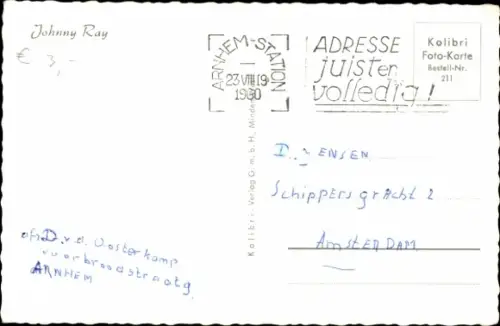 Johnny Ray
€ 3,-
ARNHEM-STATION
23.VIII.19
1960
ADRESSE
juist en
volledig!
Kolibri
Foto-Karte
Bestell-Nr.
211
Kolibri-Verlag G.m.b.H., Minden
I. JENSEN
Schippersgracht 2
AMSTERDAM.
afz. D. v.d. Oosterkamp
ARNHEM